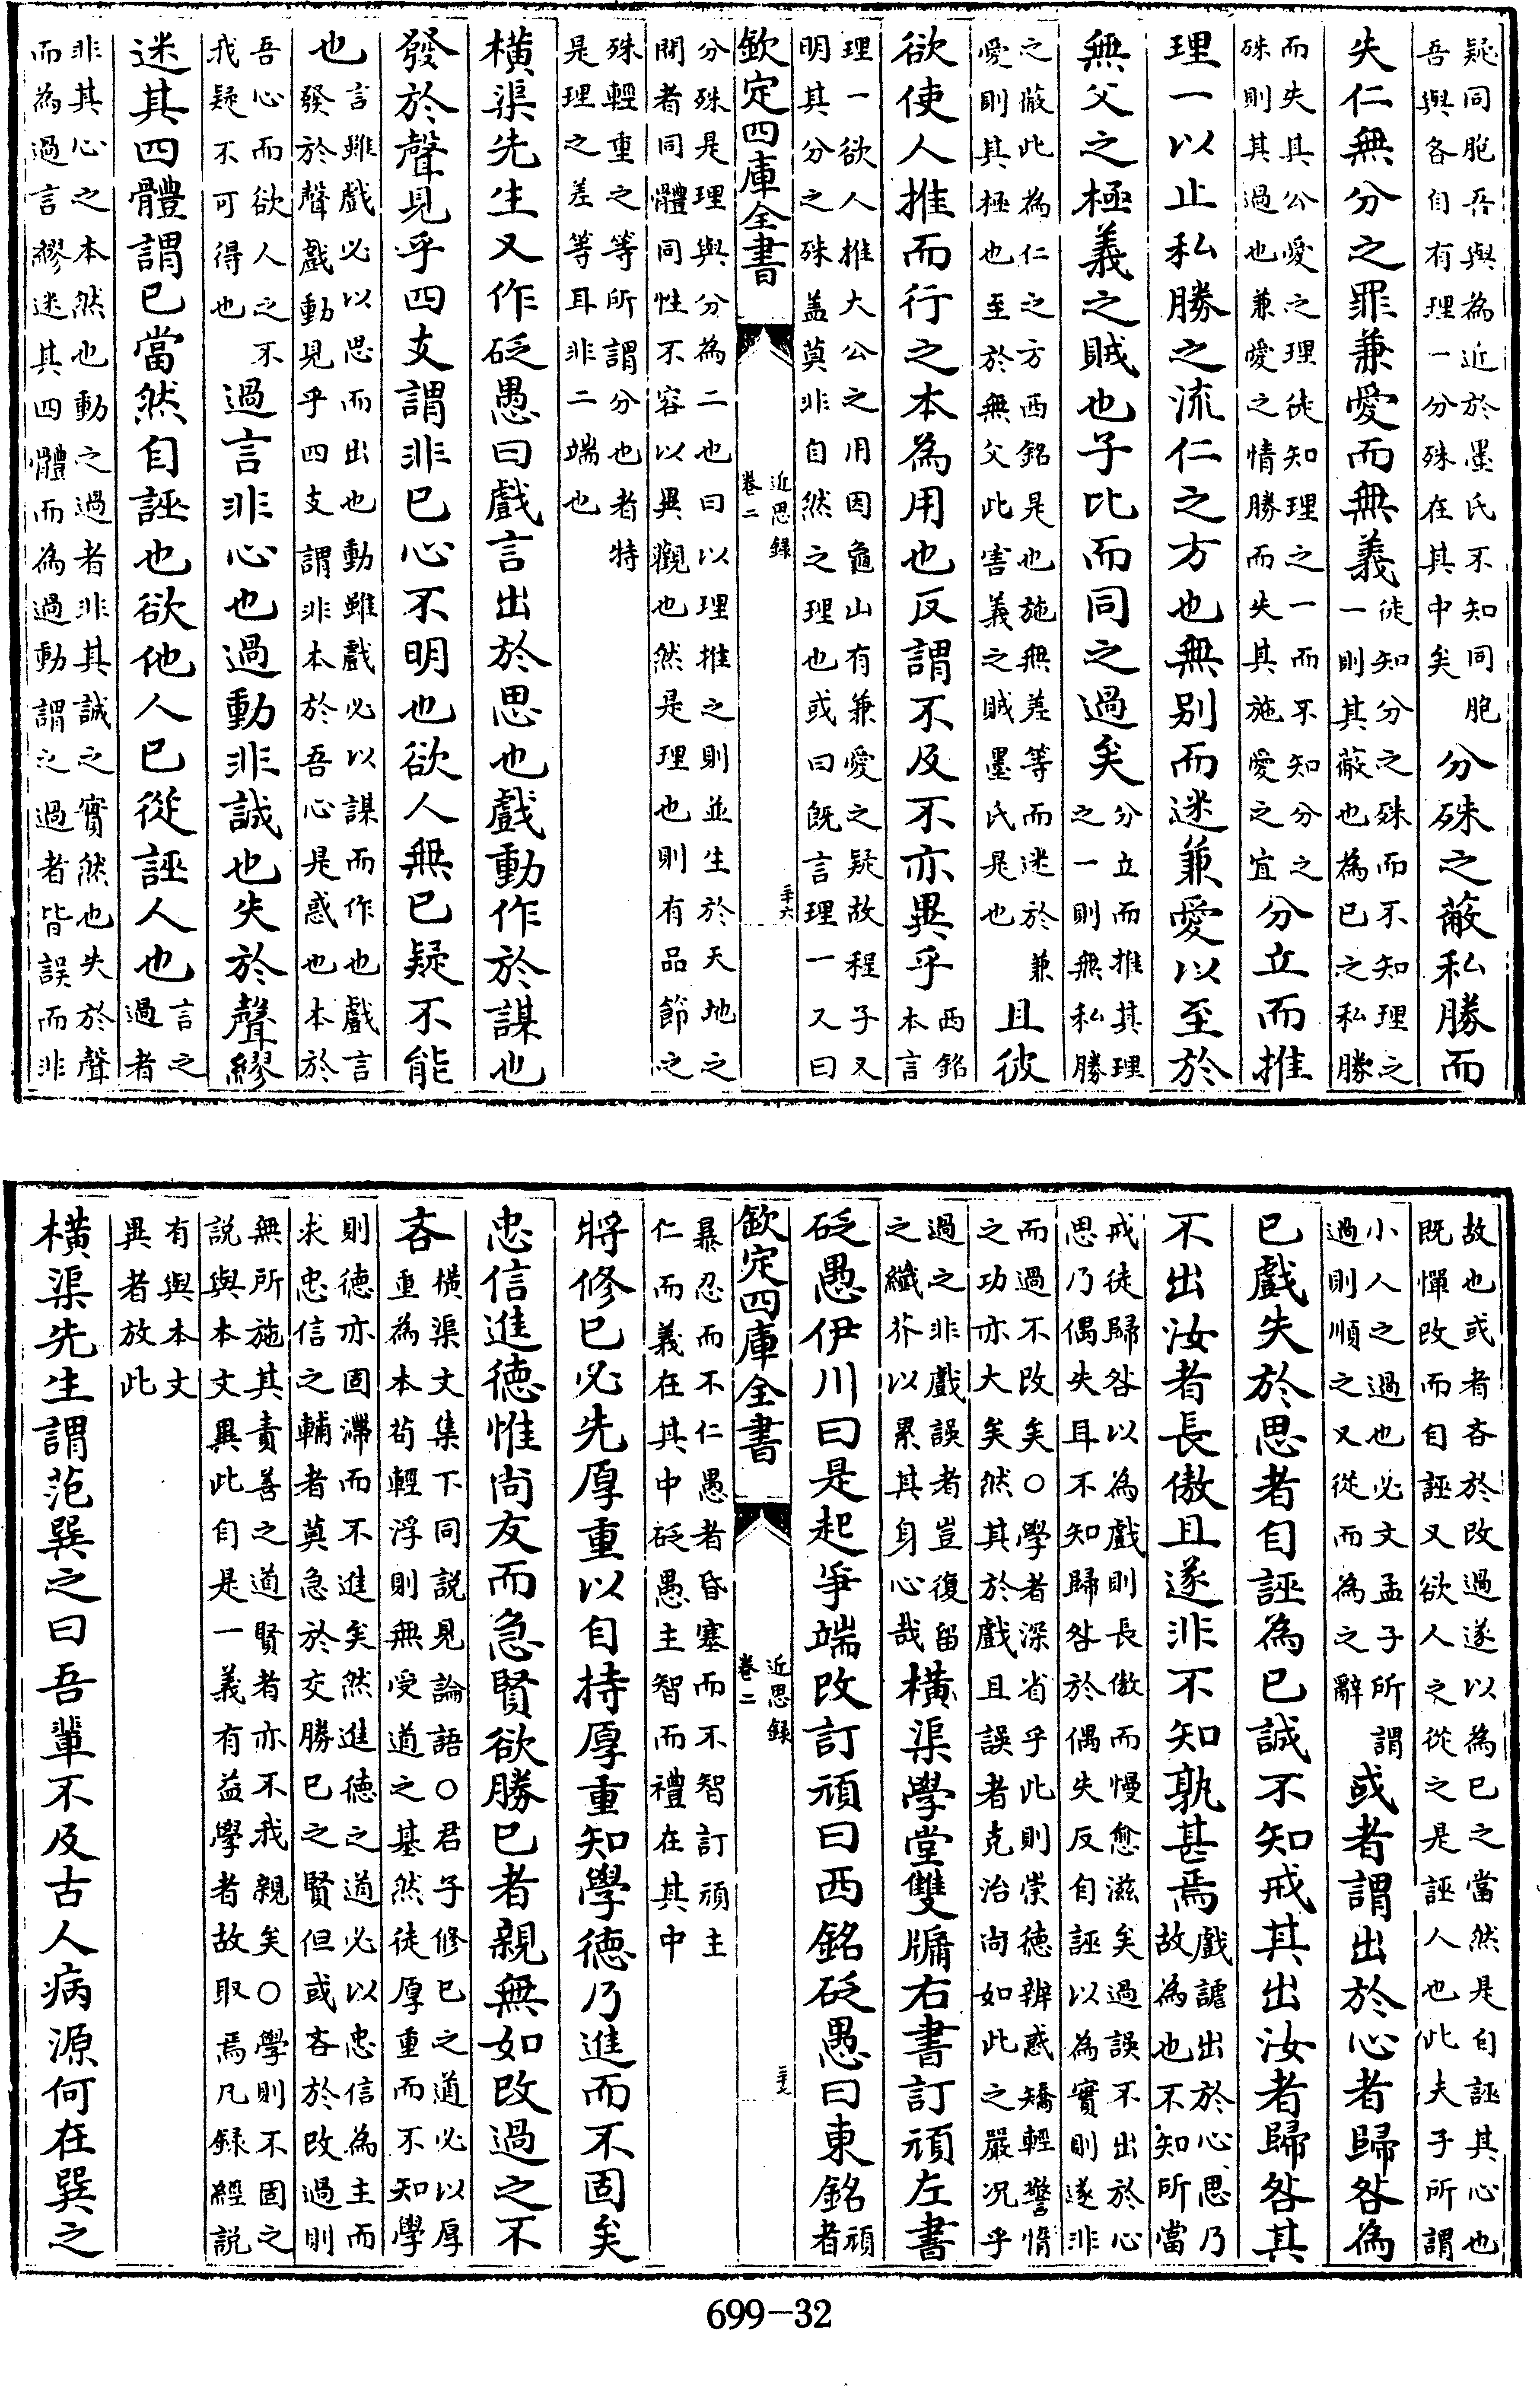 疑同胞吾與為近於墨氏不知同胞
吾與各自有理一分殊在其中矣
分殊之蔽私勝而
失仁無分之罪兼愛而無義
徒知分之殊而不知理之
一則其蔽也為已之私勝
而失其公愛之理徒知理之一而不知分之
殊則其過也兼愛之情勝而失其施愛之宜
分立而推
理一以止私勝之流仁之方也無别而迷兼愛以至於
無父之極義之賊也子比而同之過矣
分立而推其理
之一則無私勝
之蔽此為仁之方西銘是也施無差等而迷於兼
愛則其極也至於無父此害義之賊墨氏是也
且彼
欲使人推而行之本為用也反謂不及不亦異乎
西銘
本言
理一欲人推大公之用因龜山有兼愛之疑故程子又
明其分之殊盖莫非自然之理也或曰既言理一又曰
欽定四庫全書
近思録
卷二
三十六
分殊是理與分為二也曰以理推之則並生於天地之
間者同體同性不容以異觀也然是理也則有品節之
殊輕重之等所謂分也者特
是理之差等耳非二端也
橫渠先生又作砭愚曰戲言出於思也戲動作於謀也
發於聲見乎四支謂非已心不明也欲人無已疑不能
也
言雖戲必以思而出也動雖戲必以謀而作也戲言
發於聲戲動見乎四支謂非本於吾心是惑也本於
吾心而欲人之不
我疑不可得也
過言非心也過動非誠也失於聲繆
迷其四體謂已當然自誣也欲他人已從誣人也
言之
過者
非其心之本然也動之過者非其誠之實然也失於聲
而為過言繆迷其四體而為過動謂之過者皆誤而非
故也或者吝於改過遂以為已之當然是自誣其心也
既憚改而自誣又欲人之從之是誣人也此夫子所謂
小人之過也必文孟子所謂
過則順之又從而為之辭
或者謂出於心者歸咎為
已戲失於思者自誣為已誠不知戒其出汝者歸咎其
不出汝者長傲且遂非不知孰甚焉
戲謔出於心思乃
故為也不知所當
戒徒歸咎以為戲則長傲而慢愈滋矣過誤不出於心
思乃偶失耳不知歸咎於偶失反自誣以為實則遂非
而過不改矣○學者深省乎此則崇德辨惑矯輕警惰
之功亦大矣然其於戲且誤者克治尚如此之嚴况乎
過之非戲誤者豈復留
之纖芥以累其身心哉
橫渠學堂雙牖右書訂頑左書
砭愚伊川曰是起爭端改訂頑曰西銘砭愚曰東銘
頑
者
欽定四庫全書
近思録
卷二
三十七
暴忍而不仁愚者昏塞而不智訂頑主
仁而義在其中砭愚主智而禮在其中
將修已必先厚重以自持厚重知學德乃進而不固矣
忠信進德惟尚友而急賢欲勝已者親無如改過之不
吝
橫渠文集下同說見論語○君子修已之道必以厚
重為本苟輕浮則無受道之基然徒厚重而不知學
則德亦固滯而不進矣然進德之道必以忠信為主而
求忠信之輔者莫急於交勝已之賢但或吝於改過則
無所施其責善之道賢者亦不我親矣○學則不固之
說與本文異此自是一義有益學者故取焉凡録經說
有與本文
異者放此
橫渠先生謂范巽之曰吾輩不及古人病源何在巽之
699-32